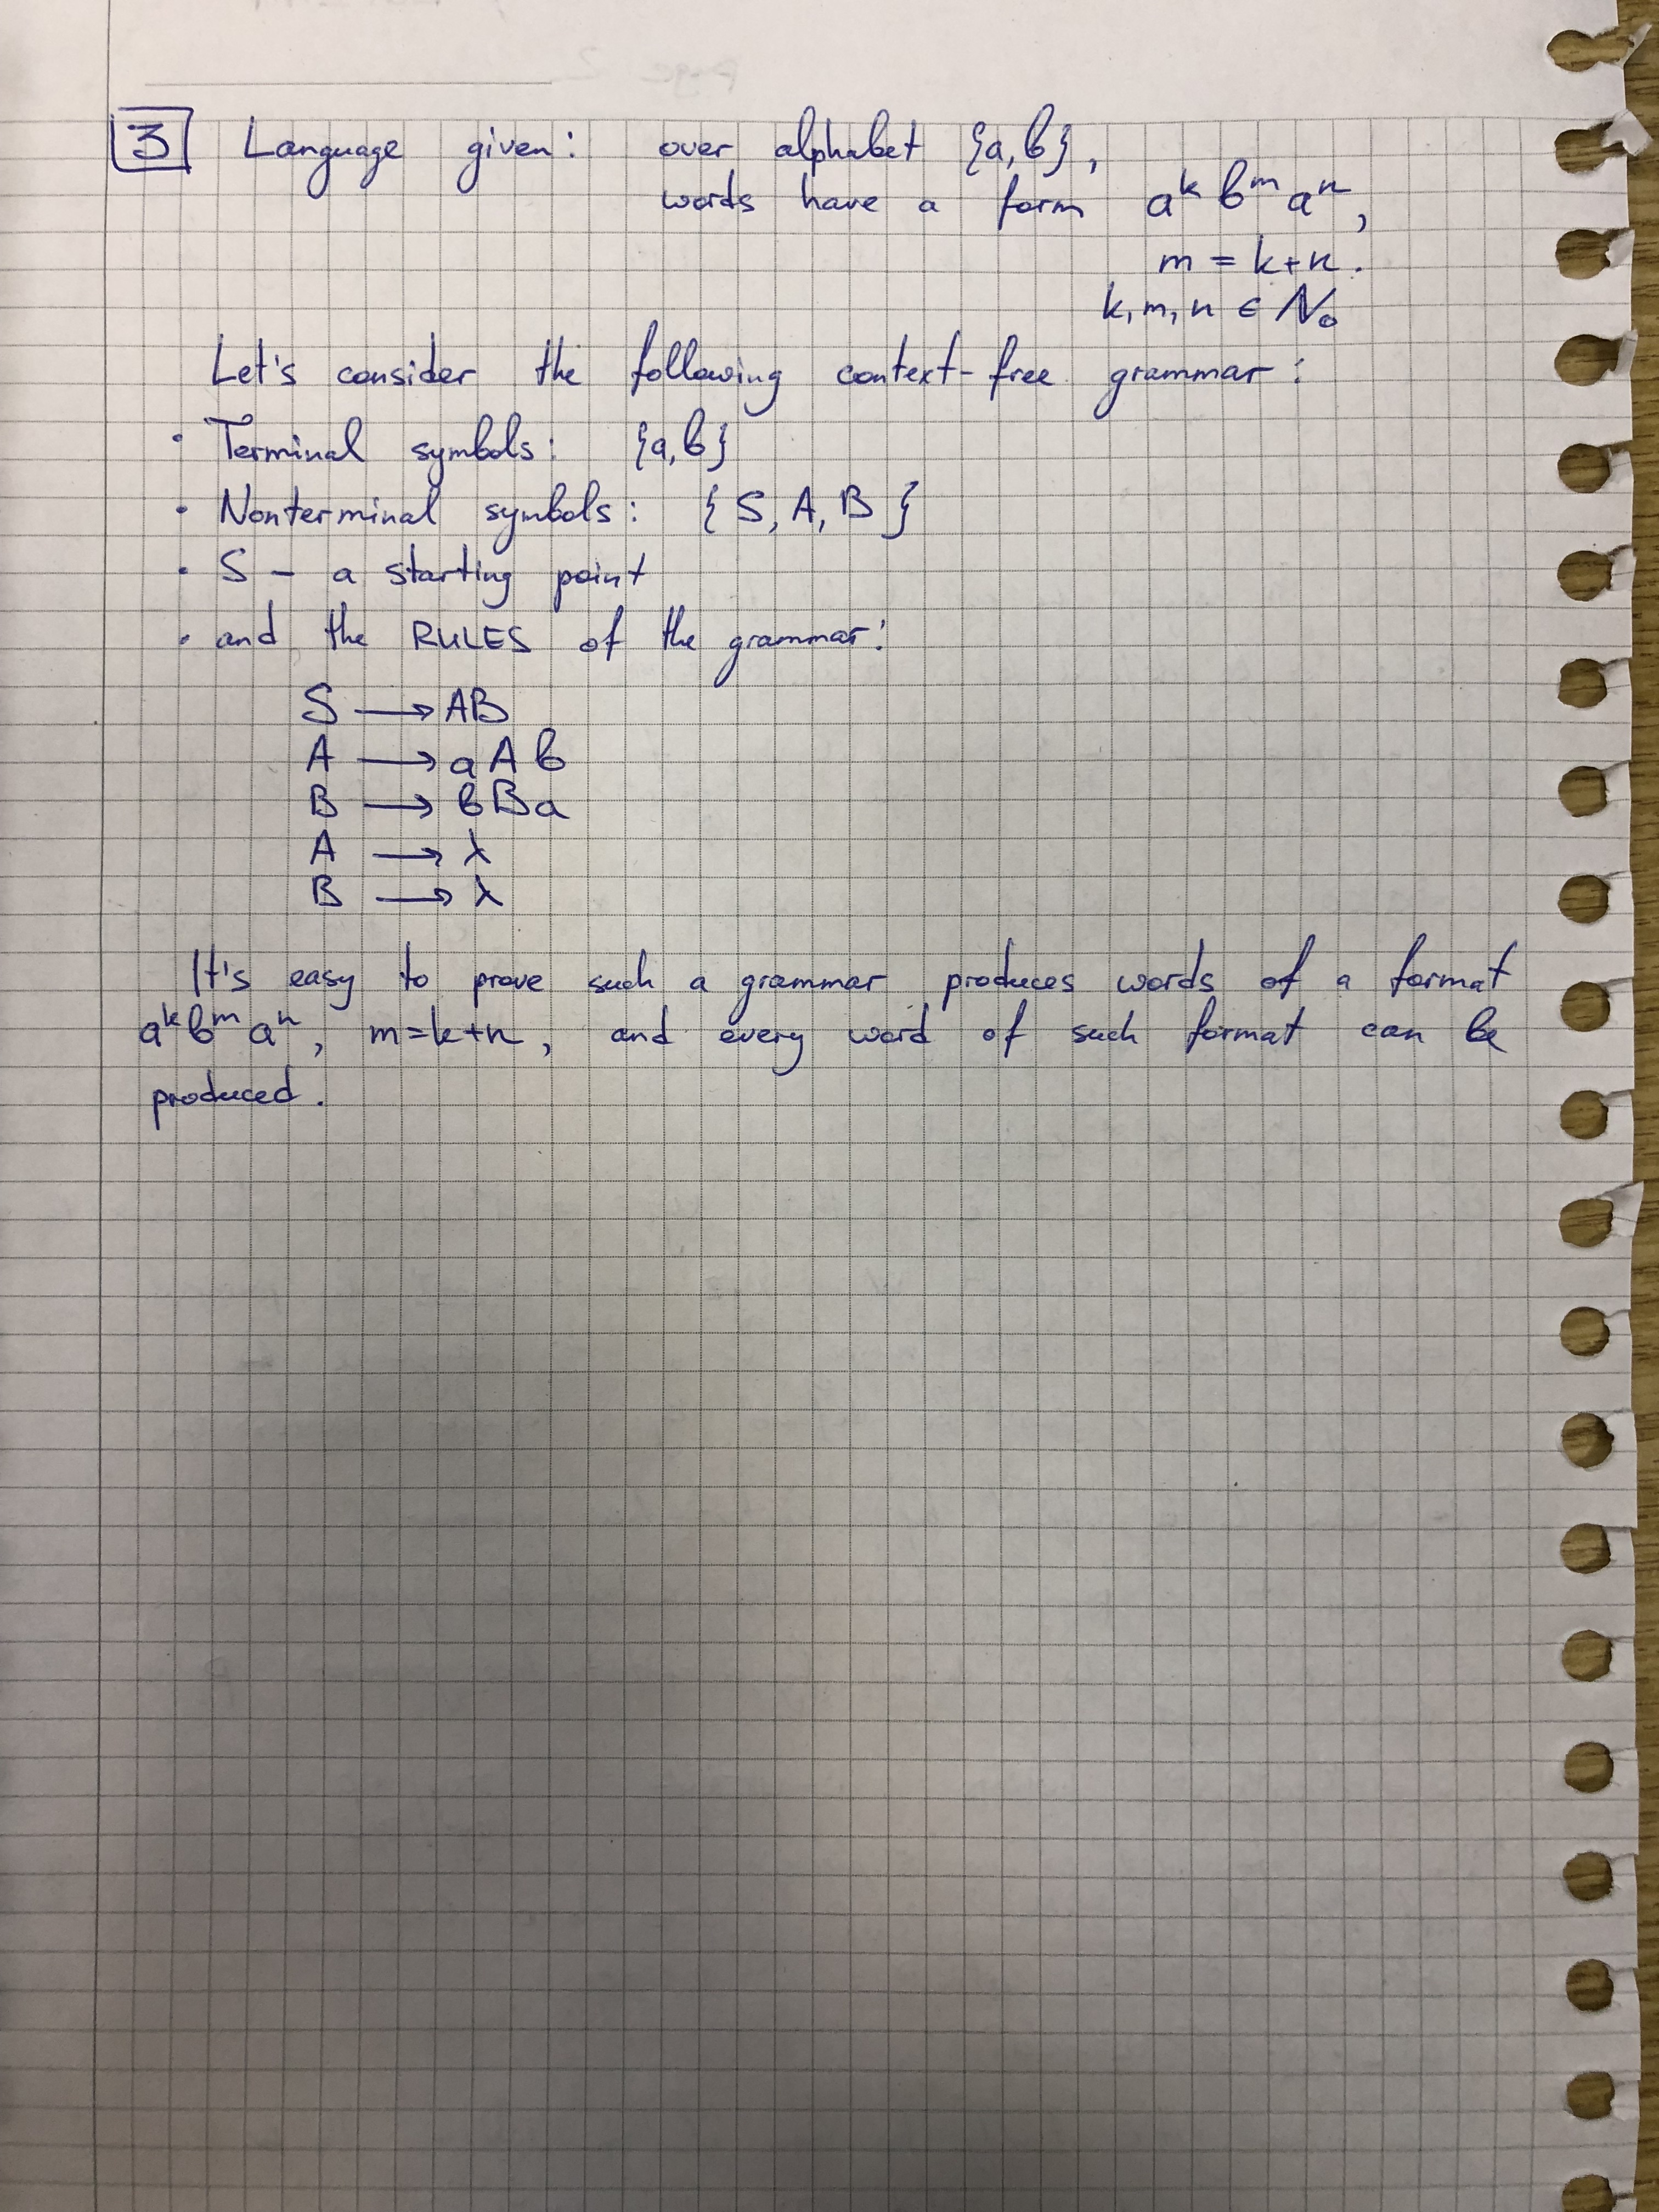 3 Language given: over alphabet {a,b},
words have a form aᵏ bᵐ aⁿ,
m = k+n.
k, m, n ∈ ℕ₀
Let's consider the following context-free grammar:
· Terminal symbols: {a,b}
· Nonterminal symbols: {S, A, B}
· S – a starting point
· and the RULES of the grammar:
S → AB
A → aAb
B → bBa
A → λ
B → λ
It's easy to prove such a grammar produces words of a format
aᵏbᵐ aⁿ, m=k+n, and every word of such format can be
produced.